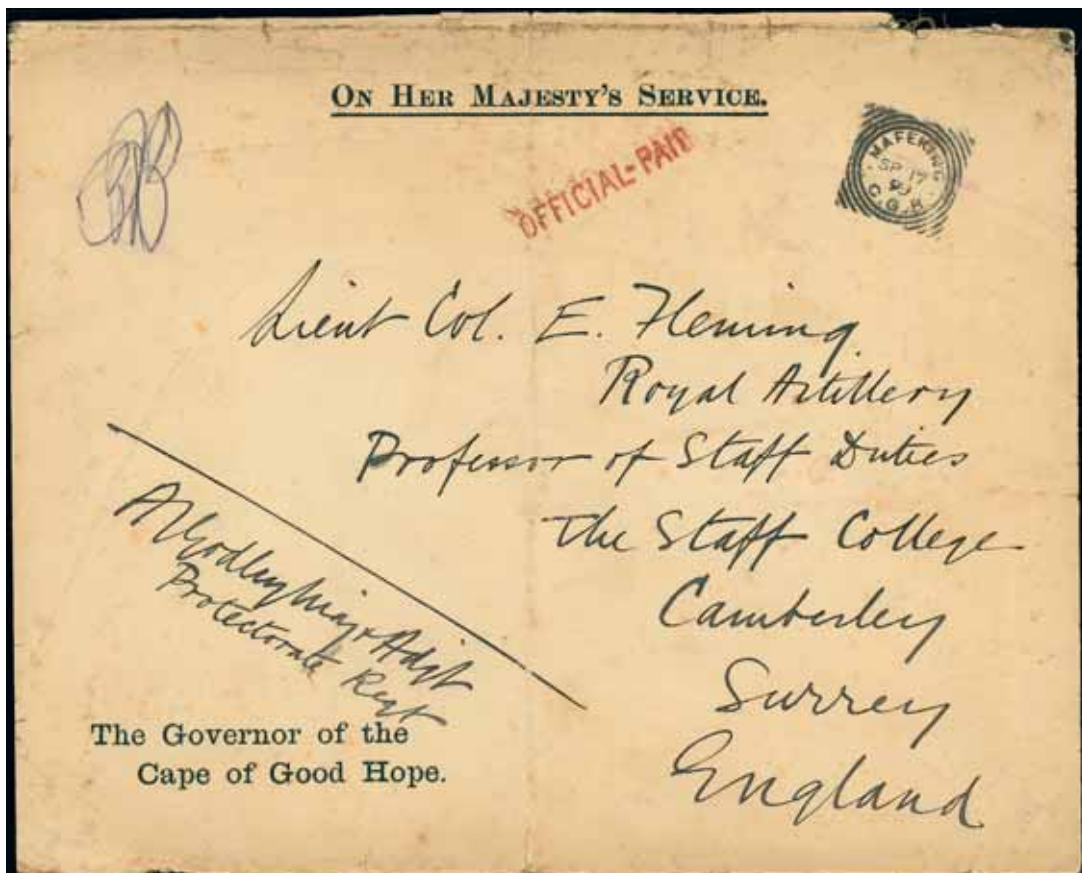 ON HER MAJESTY'S SERVICE.
OFFICIAL-PAID
MAFEKING
SP 17
C.G.H
Lieut Col. E. Fleming
Royal Artillery
Professor of Staff Duties
The Staff College
Camberley
Surrey
England
A Godley Major & Adjt
Protectorate Regt
The Governor of the
Cape of Good Hope.